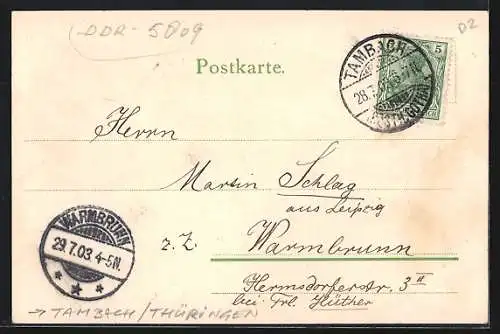 DDR - 5809
D2
Postkarte.
5
TAMBACH
28.7.
Herrn
Martin Schlag
aus Leipzig
z. Z. Warmbrunn
Hermsdorferstr. 3 II
bei Frl. Hüther
WARMBRUNN
29.7.03 4-5N.
→ TAMBACH/THÜRINGEN